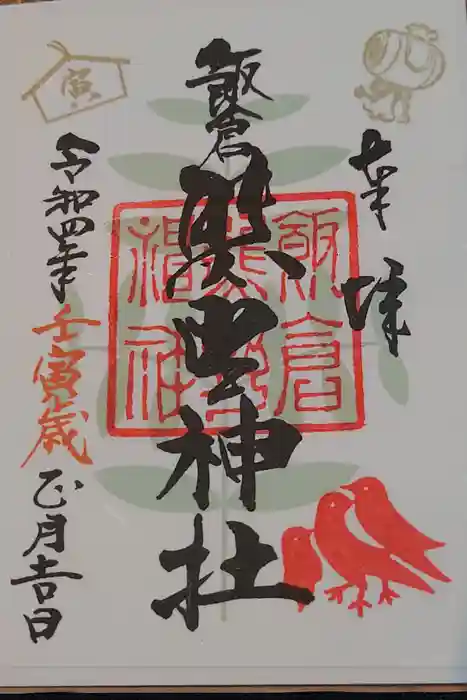 奉拝
飯倉
熊野神社
飯倉
熊野
神社
令和四年
壬寅歳
正月吉日
寅